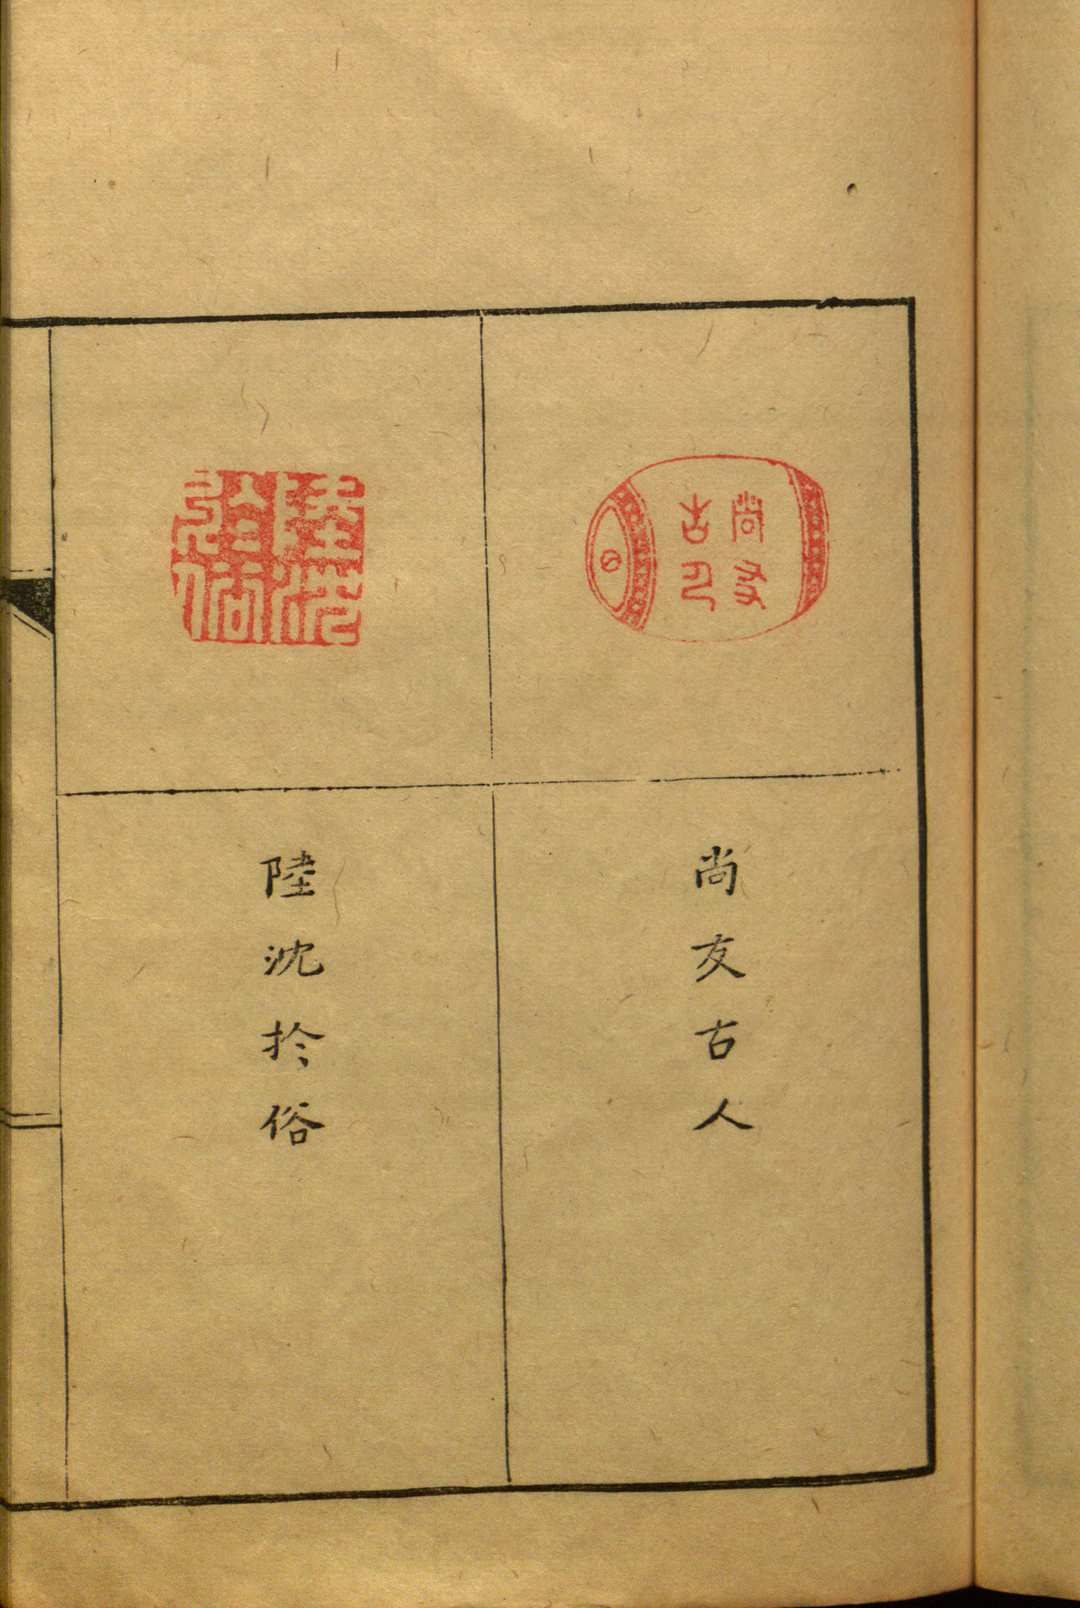 尚友古人
尚友古人
陸沈於俗
陸沈於俗